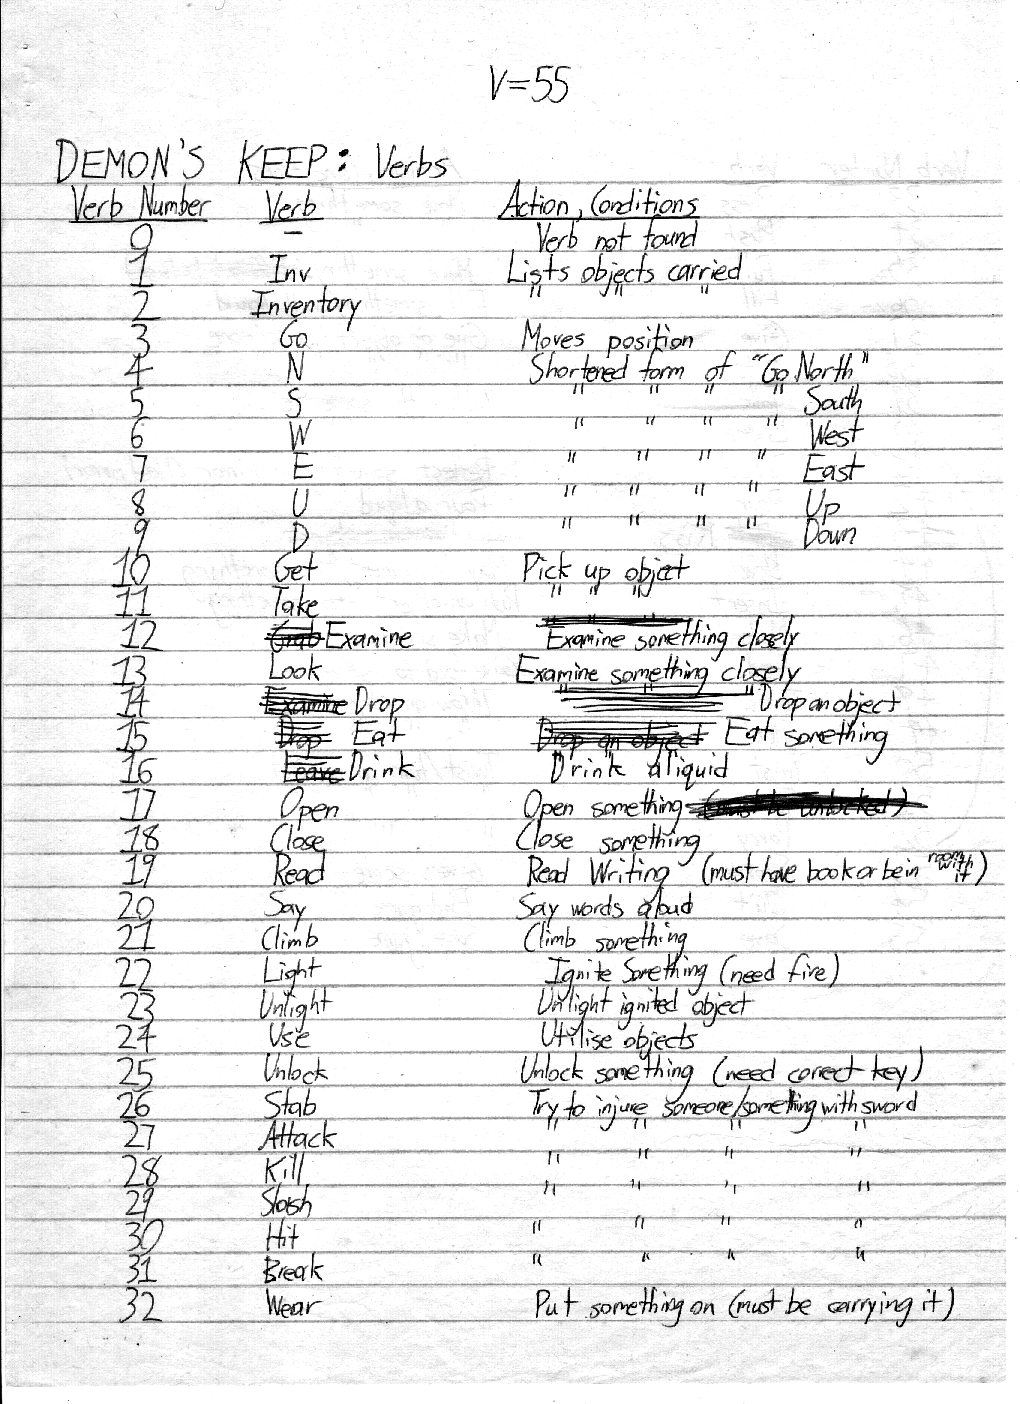 V=55
DEMON'S KEEP: Verbs
Verb Number Verb Action, Conditions
0 – Verb not found
1 Inv Lists objects carried
2 Inventory " " "
3 Go Moves position
4 N Shortened form of "Go North"
5 S " " " " South
6 W " " " " West
7 E " " " " East
8 U " " " " Up
9 D " " " " Down
10 Get Pick up object
11 Take " " "
12 Grab Examine Examine something closely
13 Look Examine something closely
14 Examine Drop " " " Drop an object
15 Drop Eat Drop an object Eat something
16 Leave Drink Drink a liquid
17 Open Open something (must be unlocked)
18 Close Close something
19 Read Read Writing (must have book or be in room with it)
20 Say Say words aloud
21 Climb Climb something
22 Light Ignite Something (need fire)
23 Unlight Unlight ignited object
24 Use Utilise objects
25 Unlock Unlock something (need correct key)
26 Stab Try to injure someone/something with sword
27 Attack " " " "
28 Kill " " " "
29 Slash " " " "
30 Hit " " " "
31 Break " " " "
32 Wear Put something on (must be carrying it)